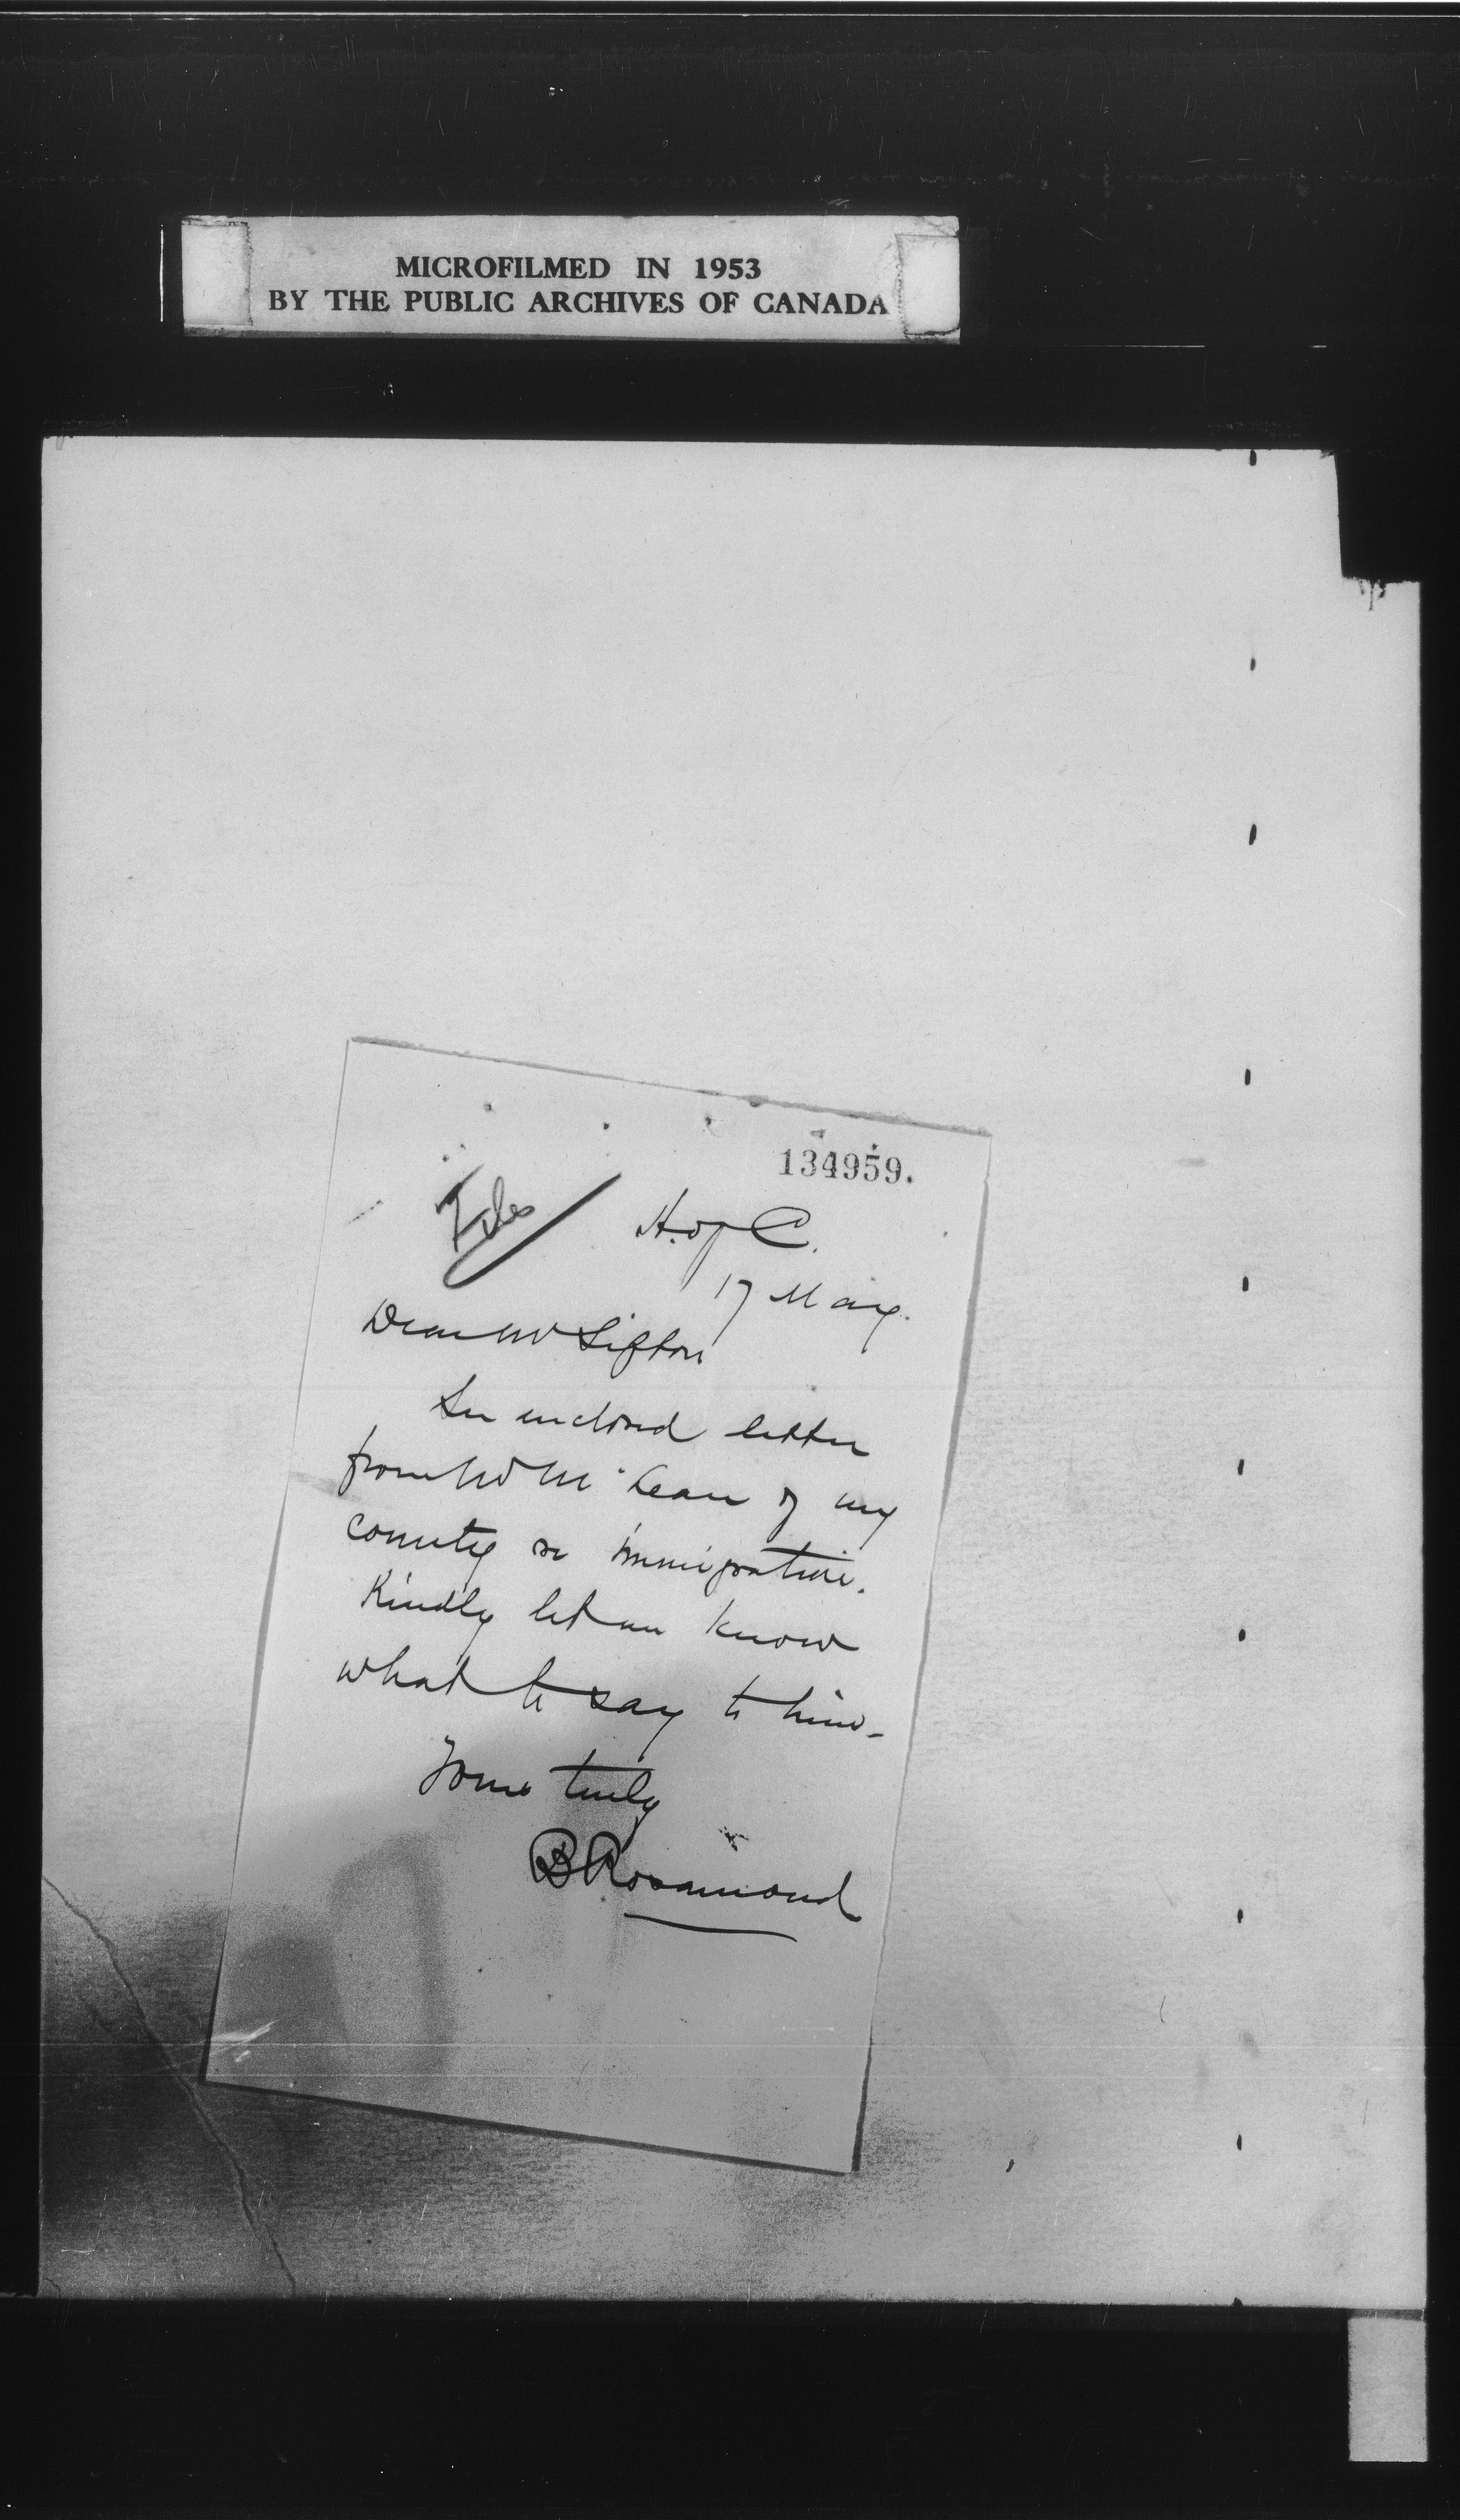 MICROFILMED IN 1953
BY THE PUBLIC ARCHIVES OF CANADA
134959.
File
H. of C.
17 May.
Dear Mr Sifton
See enclosed letter
from Mr McLean of my
county re immigration.
Kindly let me know
what to say to him—
Yours truly
B Rosamond